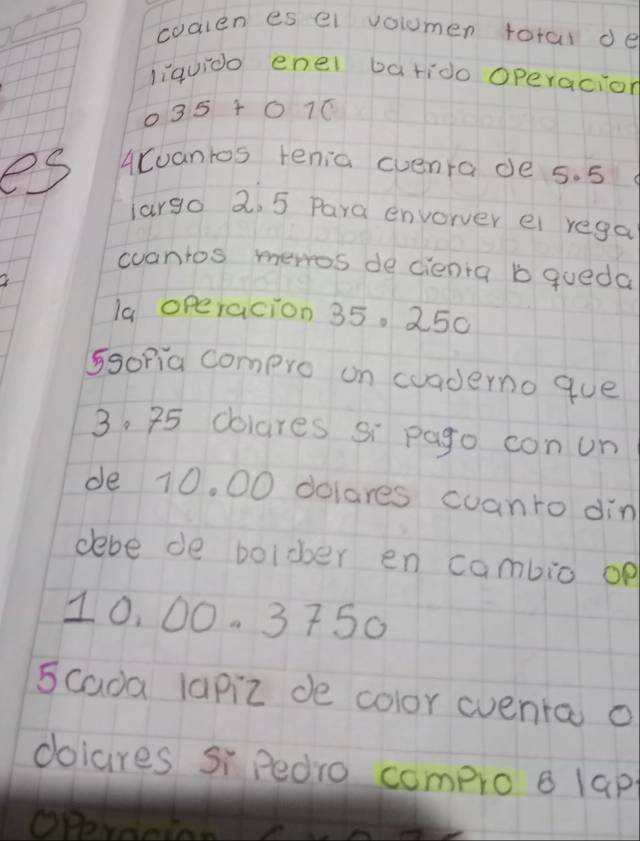 cualen es el volumen total de
liquido enel batido operacion
035 + 010
es
4Cuantos tenia cuenta de 5.5
largo 2.5 para envolver el rega
cuantos metros de cienta b queda
la operacion 35. 250
5sofia compro un cuaderno que
3.75 dolares si pago con un
de 10.00 dolares cuanto din
debe de bolcber en cambio op
10.00 - 3750
5 cada lapiz de color cuenta 0
dolares si Pedro compro 8 lap
operacion